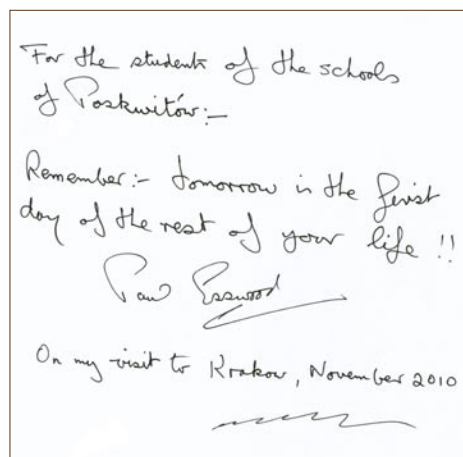 For the students of the schools
of Poskwitów:-
Remember:- tomorrow is the first
day of the rest of your life !!
Paul Esswood
On my visit to Krakow, November 2010